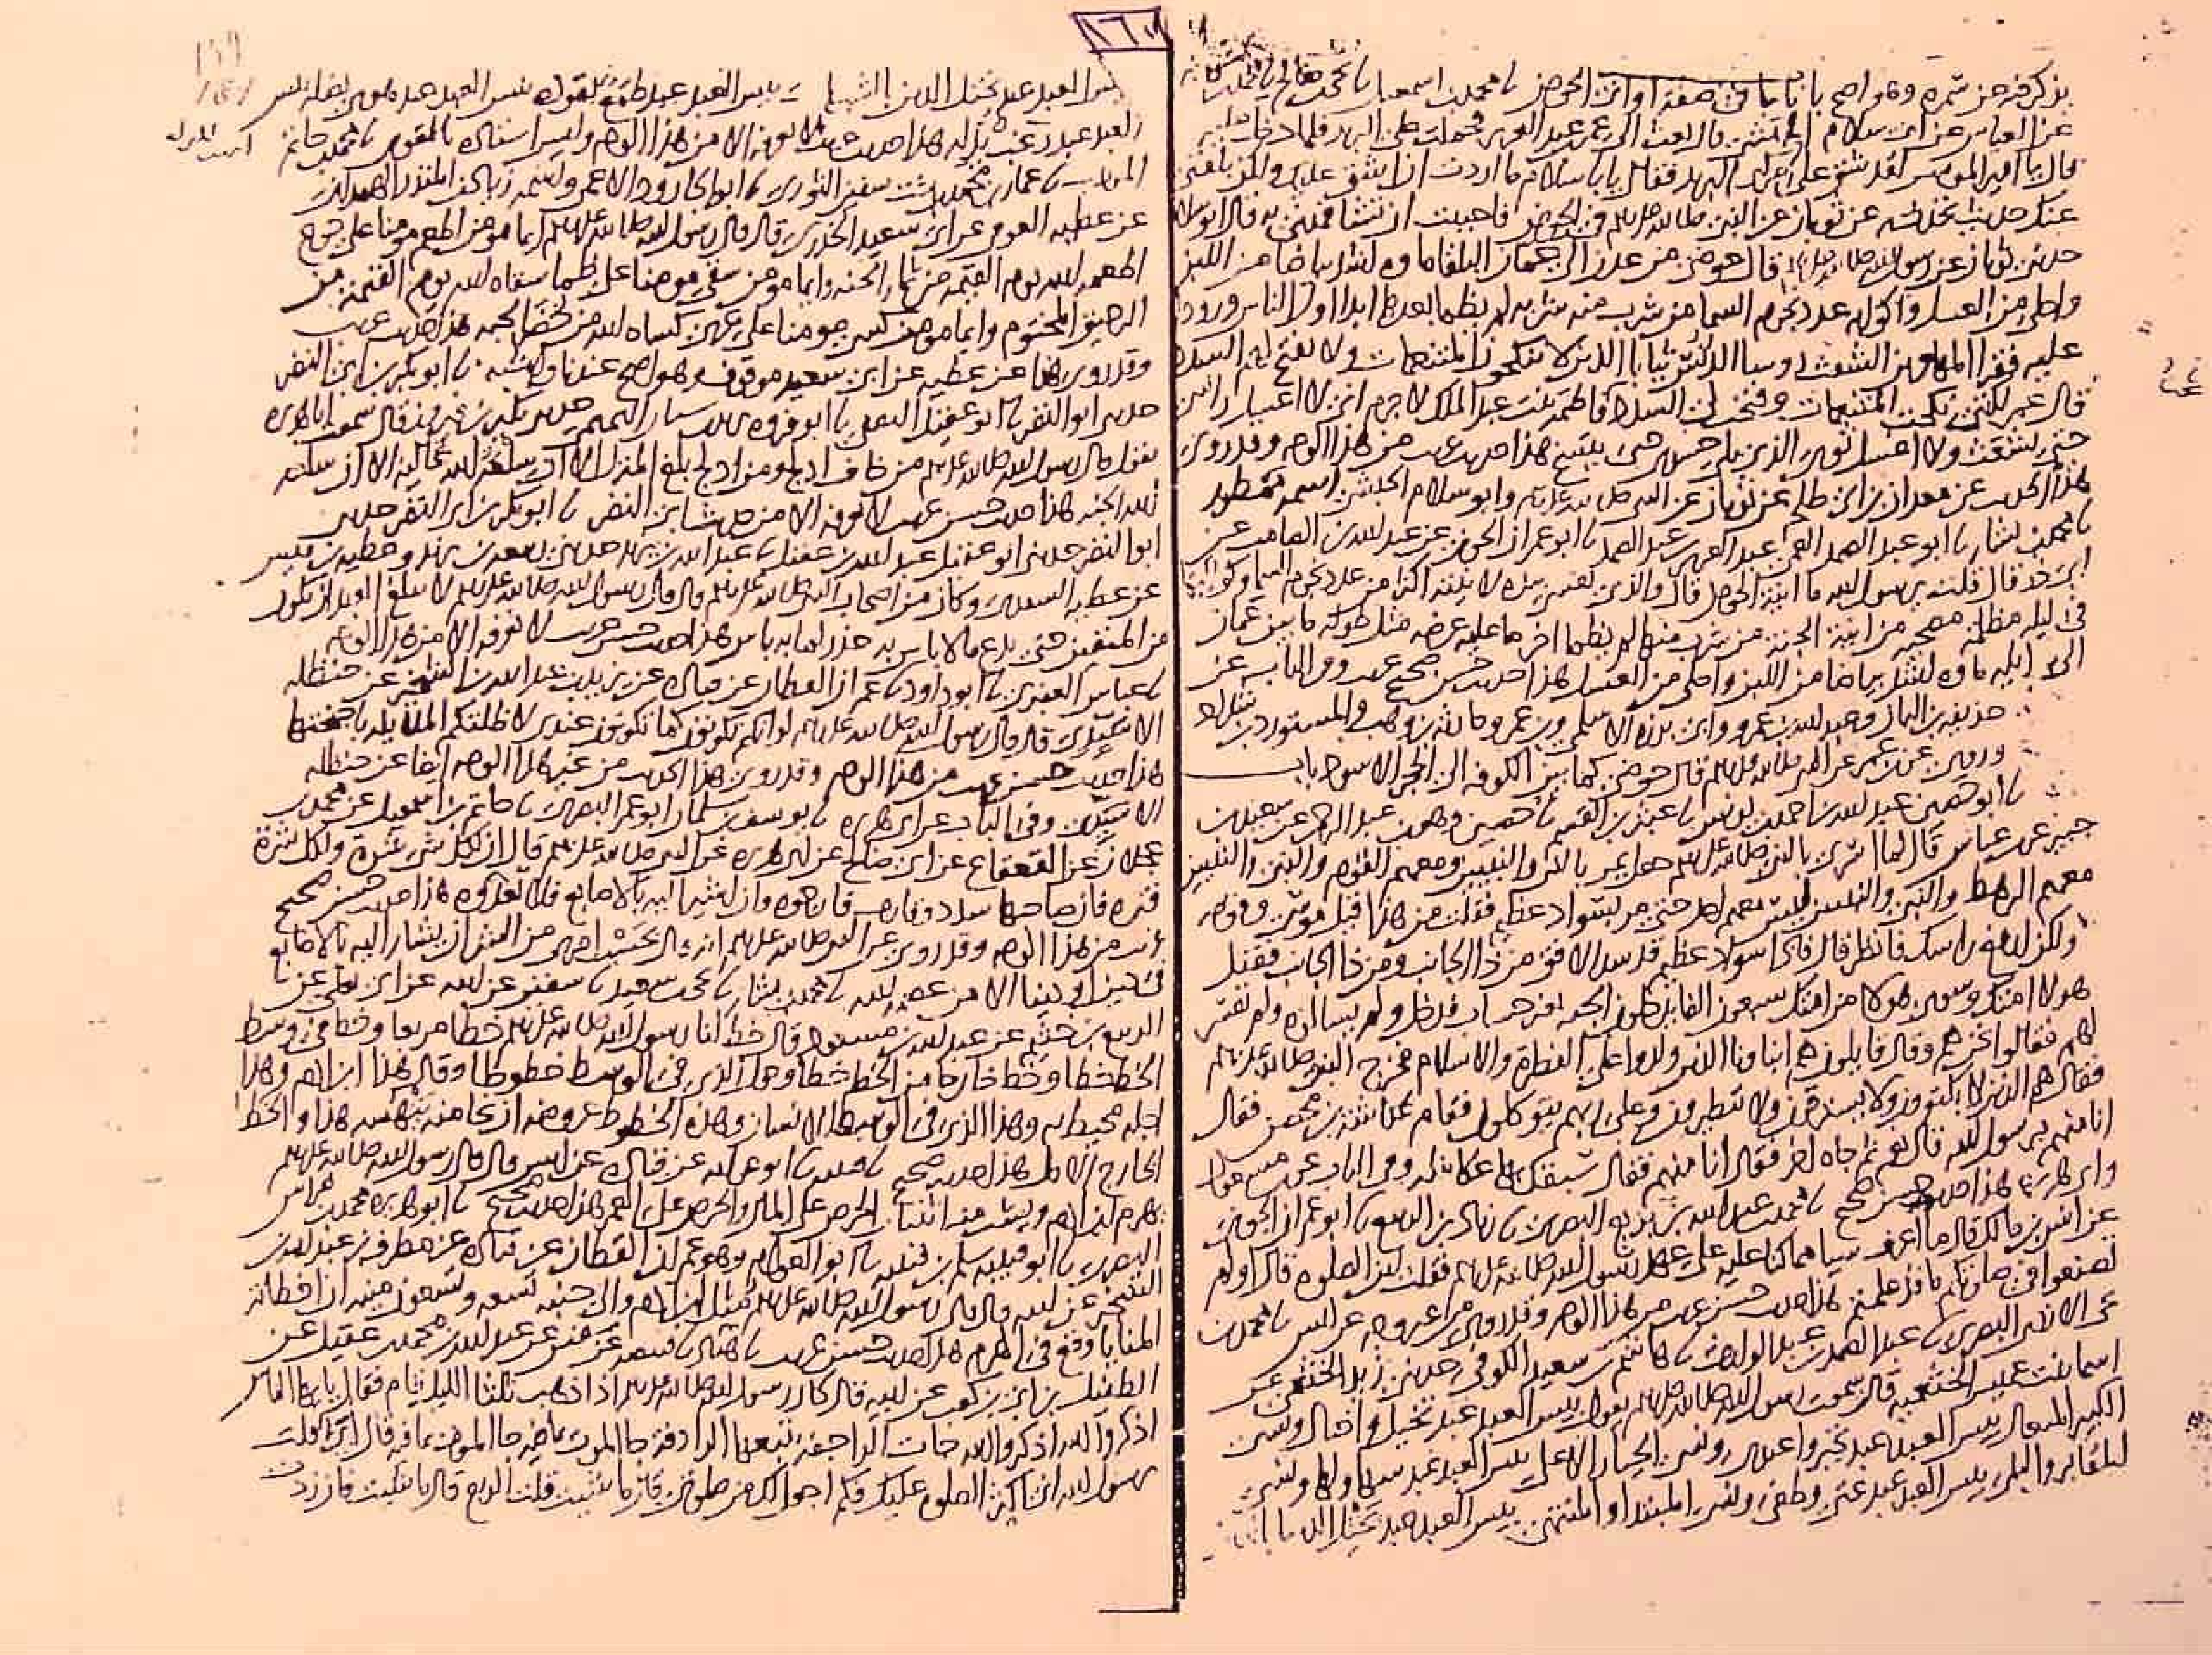 يذكر فيه عن سمرة وهو اصح باب ما جا في صفة اواني الحوض نا محمد بن اسمعيل نا يحيى بن صالح نا محمد بن
عن العباس عن ابي سلام الحبشي قال بعث الي عمر بن عبد العزيز فحملت على البريد فلما دخلت عليه
قال يا امير المومنين لقد شق علي مركبي البريد فقال يا با سلام ما اردت ان اشق عليك ولكن بلغني
عنك حديث تحدثه عن ثوبان عن النبي صلى الله عليه وسلم في الحوض فاحببت ان تشافهني به قال ابو سلام
حدثني ثوبان عن رسول الله صلى الله عليه وسلم قال حوضي من عدن الى عمان البلقا ماوه اشد بياضا من اللبن
واحلى من العسل واكوابه عدد نجوم السما من شرب منه شربة لم يظما بعدها ابدا اول الناس ورودا
عليه فقرا المهاجرين الشعث روسا الدنس ثيابا الذين لا ينكحون المتنعمات ولا تفتح لهم السدد
قال عمر لكني نكحت المتنعمات وفتحت لي السدد فاطمة بنت عبد الملك لا جرم اني لا اغسل راسي
حتى يشعث ولا اغسل ثوبي الذي يلي جسدي حتى يتسخ هذا حديث غريب من هذا الوجه وقد روي
هذا الحديث عن معدان بن ابي طلحة عن ثوبان عن النبي صلى الله عليه وسلم وابو سلام الحبشي اسمه ممطور
نا محمد بن بشار نا ابو عبد الصمد العمي عبد العزيز بن عبد الصمد نا ابو عمران الجوني عن عبد الله بن الصامت عن
ابي ذر قال قلت يرسول الله ما انية الحوض قال والذي نفسي بيده لانيته اكثر من عدد نجوم السما وكواكبها
في ليلة مظلمة مصحية من انية الجنة من شرب منها لم يظما اخر ما عليه عرضه مثل طوله ما بين عمان
الى ايلة ماوه اشد بياضا من اللبن واحلى من العسل هذا حديث حسن صحيح غريب وفي الباب عن
حذيفة بن اليمان وعبد الله بن عمرو وابي برزة الاسلمي وبن عمر وحارثة بن وهب والمستورد بن شداد
وروي عن بن عمر عن النبي صلى الله عليه وسلم قال حوضي كما بين الكوفة الى الحجر الاسود باب
نا ابو حصين عبد الله بن احمد بن يونس نا عبثر بن القسم نا حصين وهو بن عبد الرحمن عن سعيد بن
جبير عن بن عباس قال لما اسري بالنبي صلى الله عليه وسلم جعل يمر بالنبي والنبيين ومعهم القوم والنبي والنبيين
معهم الرهط والنبي والنبيين ليس معهم احد حتى مر بسواد عظيم فقلت من هذا قيل موسى وقومه
ولكن ارفع راسك فانظر قال فاذا سواد عظيم قد سد الافق من ذا الجانب ومن ذا الجانب فقيل
هولا امتك وسوى هولا من امتك سبعون الفا يدخلون الجنة بغير حساب فدخل ولم يسالوه ولم يفسر
لهم فقالوا نحن هم وقال قايلون هم ابناونا الذين ولدوا على الفطرة والاسلام فخرج النبي صلى الله عليه وسلم
فقال هم الذين لا يكتوون ولا يسترقون ولا يتطيرون وعلى ربهم يتوكلون فقام عكاشة بن محصن فقال
انا منهم يرسول الله قال نعم ثم جاه اخر فقال انا منهم فقال سبقك بها عكاشة وفي الباب عن بن مسعود
وابي هريرة هذا حديث حسن صحيح نا محمد بن عبد الله بن بزيع البصري نا زياد بن الربيع نا ابو عمران الجوني
عن انس بن مالك قال ما اعرف شيا مما كنا عليه على عهد رسول الله صلى الله عليه وسلم فقلت اين الصلوة قال اولم
تصنعوا في صلاتكم ما قد علمتم هذا حديث حسن غريب من هذا الوجه وقد روي من غير وجه عن انس نا محمد بن
يحيى الازدي البصري نا عبد الصمد بن عبد الوارث نا هاشم بن سعيد الكوفي حدثني زيد الخثعمي عن
اسما بنت عميس الخثعمية قالت سمعت رسول الله صلى الله عليه وسلم يقول بيس العبد عبد تخيل واختال ونسي
الكبير المتعال بيس العبد عبد تجبر واعتدى ونسي الجبار الاعلى بيس العبد عبد سها ولها ونسي
المقابر والبلى بيس العبد عبد عتى وطغى ونسي المبتدا والمنتهى بيس العبد عبد يختل الدنيا
بيس العبد عبد يختل الدين بالشبهات بيس العبد عبد طمع يقوده بيس العبد عبد هوى يضله بيس
العبد عبد رغب يذله هذا حديث غريب لا نعرفه الا من هذا الوجه وليس اسناده بالقوي نا محمد بن حاتم
المودب نا عمار بن محمد بن اخت سفين الثوري نا ابو الجارود الاعمى واسمه زياد بن المنذر الهمداني
عن عطية العوفي عن ابي سعيد الخدري قال قال رسول الله صلى الله عليه وسلم ايما مومن اطعم مومنا على جوع
اطعمه الله يوم القيمة من ثمار الجنة وايما مومن سقى مومنا على ظما سقاه الله يوم القيمة من
الرحيق المختوم وايما مومن كسى مومنا على عري كساه الله من خضر الجنة هذا حديث غريب
وقد روي هذا عن عطية عن ابي سعيد موقوف وهو اصح عندنا واشبه نا ابو بكر بن ابي النضر
حدثني ابو النضر نا ابو عقيل الثقفي نا ابو فروة يزيد بن سنان التميمي حدثني بكير بن فيروز قال سمعت ابا هريرة
يقول قال رسول الله صلى الله عليه وسلم من خاف ادلج ومن ادلج بلغ المنزل الا ان سلعة الله غالية الا ان سلعة
الله الجنة هذا حديث حسن غريب لا نعرفه الا من حديث ابي النضر نا ابو بكر بن ابي النضر حدثني
ابو النضر حدثني ابو عقيل عبد الله بن عقيل نا عبد الله بن يزيد حدثني ربيعة بن يزيد وعطية بن قيس
عن عطية السعدي وكان من اصحاب النبي صلى الله عليه وسلم قال قال رسول الله صلى الله عليه وسلم لا يبلغ العبد ان يكون
من المتقين حتى يدع ما لا باس به حذرا لما به باس هذا حديث حسن غريب لا نعرفه الا من هذا الوجه
نا عباس العنبري نا ابو داود نا عمران القطان عن قتادة عن يزيد بن عبد الله بن الشخير عن حنظلة
الاسيدي قال قال رسول الله صلى الله عليه وسلم لو انكم تكونون كما تكونون عندي لاظلتكم الملايكة باجنحتها
هذا حديث حسن غريب من هذا الوجه وقد روي هذا الحديث من غير هذا الوجه ايضا عن حنظلة
الاسيدي وفي الباب عن ابي هريرة نا يوسف بن سلمان ابو عمر البصري نا حاتم بن اسمعيل عن محمد بن
عجلان عن القعقاع عن ابي صالح عن ابي هريرة عن النبي صلى الله عليه وسلم قال ان لكل شي شرة ولكل شرة
فترة فان صاحبها سدد وقارب فارجوه وان اشير اليه بالاصابع فلا تعدوه هذا حديث حسن صحيح
غريب من هذا الوجه وقد روي عن النبي صلى الله عليه وسلم انه قال بحسب امري من الشر ان يشار اليه بالاصابع
في دين او دنيا الا من عصمه الله نا محمد بن بشار نا يحيى بن سعيد نا سفين عن ابيه عن ابي يعلى عن
الربيع بن خثيم عن عبد الله بن مسعود قال خط لنا رسول الله صلى الله عليه وسلم خطا مربعا وخط في وسط
الخط خطا وخط خارجا من الخط خطا وحول الذي في الوسط خطوطا وقال هذا ابن ادم وهذا
اجله محيط به وهذا الذي في الوسط الانسان وهذه الخطوط عروضه ان نجا منه ينهشه هذا والخط
الخارج الامل هذا حديث صحيح نا قتيبة نا ابو عوانة عن قتادة عن انس قال قال رسول الله صلى الله عليه وسلم
يهرم ابن ادم ويشب منه اثنتان الحرص على المال والحرص على العمر هذا حديث صحيح نا ابو هريرة محمد بن فراس
البصري نا ابو قتيبة سلم بن قتيبة نا ابو العوام وهو عمران القطان عن قتادة عن مطرف بن عبد الله بن
الشخير عن ابيه قال قال رسول الله صلى الله عليه وسلم مثل ابن ادم والى جنبه تسعة وتسعون منية ان اخطاته
المنايا وقع في الهرم هذا حديث حسن غريب نا هناد نا قبيصة عن سفين عن عبد الله بن محمد بن عقيل عن
الطفيل بن ابي بن كعب عن ابيه قال كان رسول الله صلى الله عليه وسلم اذا ذهب ثلثا الليل قام فقال يا يها الناس
اذكروا الله اذكروا الله جات الراجفة تتبعها الرادفة جا الموت بما فيه جا الموت بما فيه قال ابي قلت
يرسول الله اني اكثر الصلوة عليك فكم اجعل لك من صلوتي قال ما شيت قلت الربع قال ما شيت فان زدت